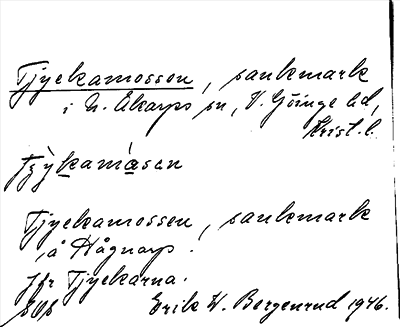 Tjyekamossen, sankmark
i N. Åkarps sn, V. Göinge hd,
Krist. l.
Tjyekamossen, sankmark
å Hågnarp.
Jfr Tjyekarna.
Erik W. Bergenrud 1946.